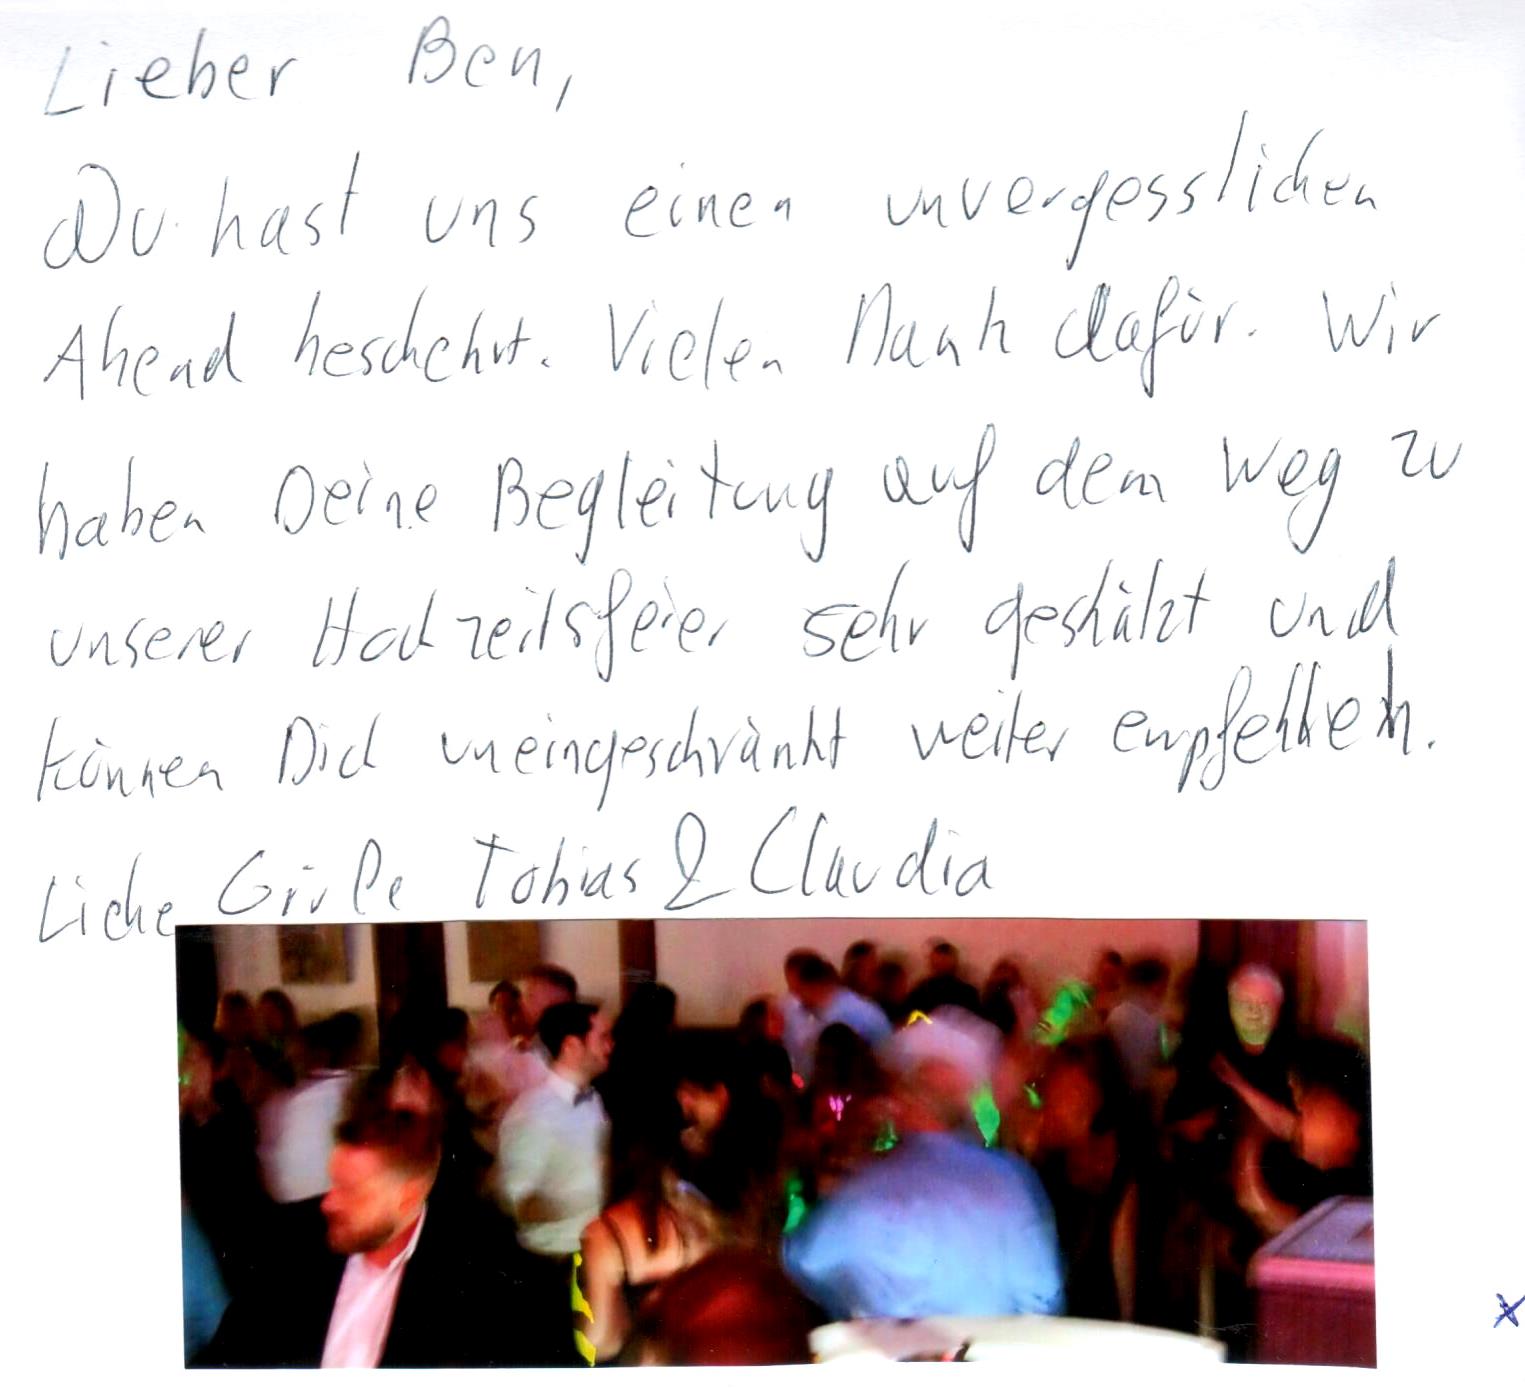 Lieber Ben,
Du hast uns einen unvergesslichen
Abend beschehrt. Vielen Dank dafür. Wir
haben Deine Begleitung auf dem Weg zu
unserer Hochzeitsfeier sehr geschätzt und
können Dich uneingeschränkt weiter empfehlen.
Liebe Grüße Tobias & Claudia